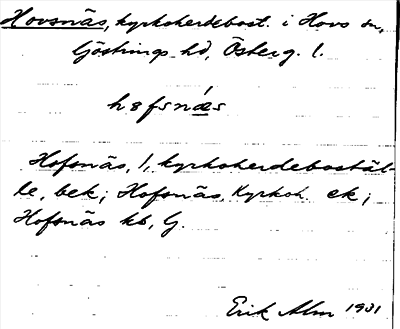 Hovsnäs, kyrkoherdebost. i Hovs sn,
Göstrings hd, Österg. l.
hofsnæs
Hofsnäs, 1, kyrkoherdeboställ-
le, bek; Hofsnäs, Kyrkoh. ek;
Hofsnäs kb, G.
Erik Alm 1931